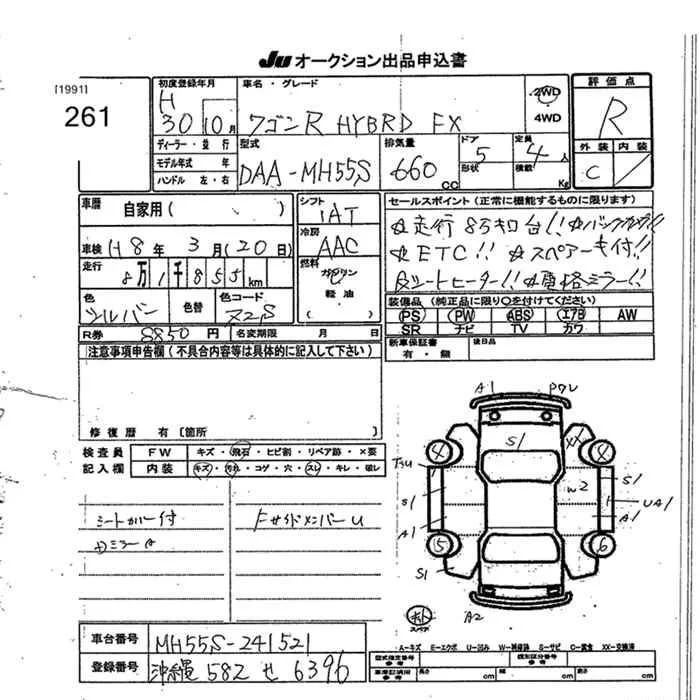 JU オークション出品申込書
[1991]
261
初度登録年月
H
30 10月
ディーラー・並行
モデル年式 年
ハンドル 左・右
車名・グレード
ワゴンR HYBRD FX
2WD
4WD
型式
DAA-MH55S
排気量
660 cc
ドア
5
形状
定員
4人
積載 Kg
評価点
R
外装 内装
C
車歴
自家用( )
車検 H8年 3月(20日)
走行
8万1千855km
色
シルバー
色替
色コード
Z2S
シフト
IAT
冷房
AAC
燃料
ガソリン
軽油
( )
セールスポイント(正常に機能するものに限ります)
☆走行8万キロ台!! ☆バックカメラ!!
☆ETC!! ☆スペアーキ付!!
☆シートヒーター!! ☆電格ミラー!!
装備品(純正品に限り○を付けてください)
PS PW ABS エアB AW
SR ナビ TV カワ
R券 8850円 名変期限 月 日
新車保証書
有・無
後日品
注意事項申告欄(不具合内容等は具体的に記入して下さい)
修復歴 有〔箇所
検査員
記入欄
FW キズ・飛石・ヒビ割・リペア跡・×要
内装 キズ・汚れ・コゲ・穴・スレ・キレ・破レ
シートカバー付
Fサイドメンバー U
A1
S1
4
4
XX
S1
S1
W2
UA1
A1
A1
5
6
S1
A2
スペア
A-キズ E-エクボ U-凹み W-補修跡 S-サビ C-腐食 XX-交換済
車台番号 MH55S-241521
登録番号 沖縄 582 せ 6396
型式指定番号
参考
類別区分番号
参考
長さ cm
幅 cm
高さ cm